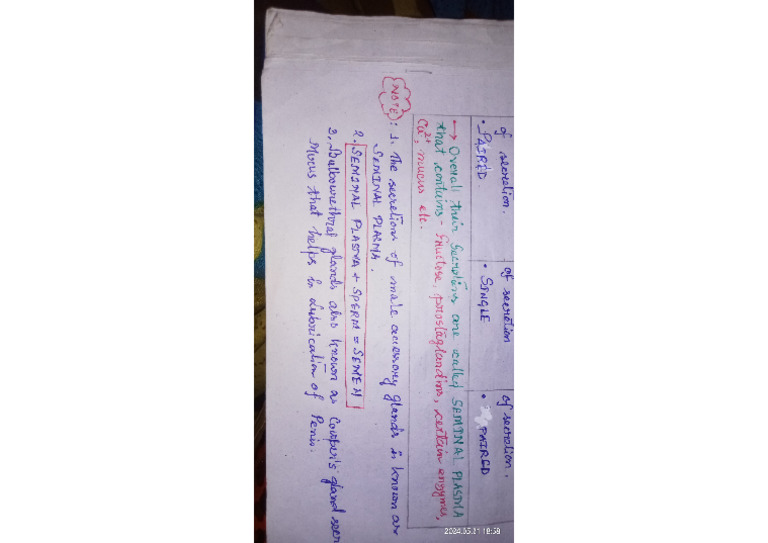 of secretion. of secretion of secretion.
• PAIRED. • SINGLE • PAIRED
→ Overall their secretions are called SEMINAL PLASMA
that contains - fructose, prostaglandins, certain enzymes,
Ca²⁺, mucous etc.
NOTE: 1. The secretions of male accessory glands is known as
SEMINAL PLASMA.
2. SEMINAL PLASMA + SPERM = SEMEN
3. Bulbourethral glands also known as Cowper's gland
Mucus that helps in lubrication of Penis.
2024.05.21 18:58